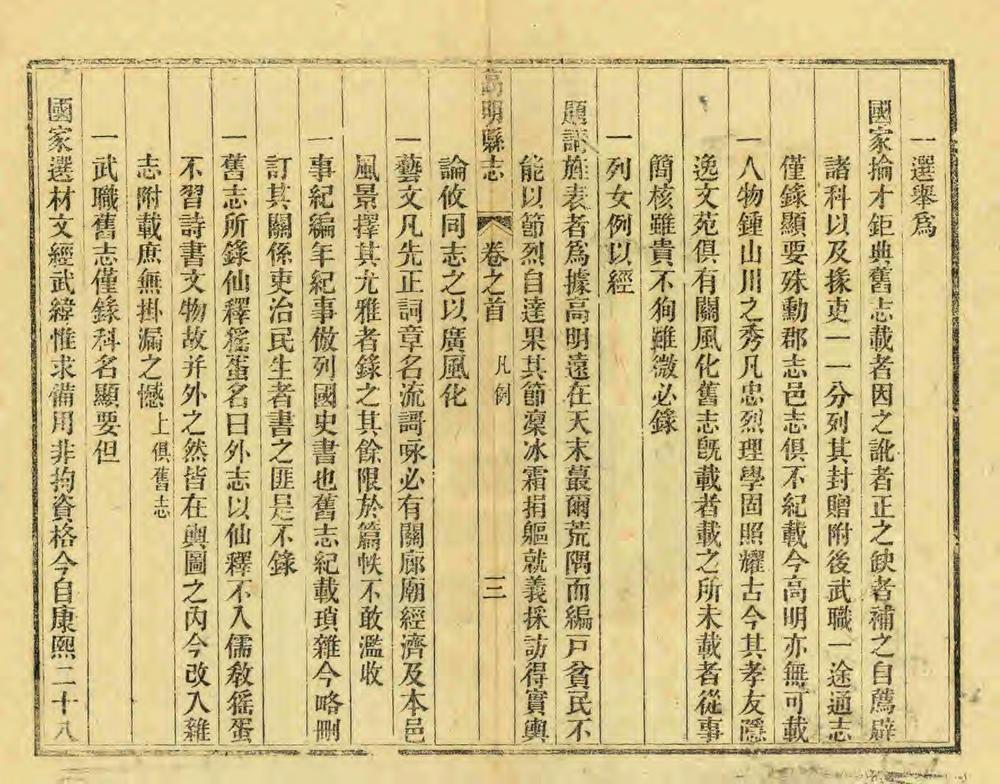 一選舉爲
國家掄才鉅典舊志載者因之訛者正之缺者補之自薦辟
諸科以及掾吏一一分列其封贈附後武職一途通志
僅錄顯要殊勳郡志邑志俱不紀載今高明亦無可載
一人物鍾山川之秀凡忠烈理學固照耀古今其孝友隱
逸文苑俱有關風化舊志旣載者載之所未載者從事
簡核雖貴不狥雖微必錄
一列女例以經
題請旌表者爲據高明遠在天末蕞爾荒隅而編戸貧民不
能以節烈自達果其節凜冰霜捐軀就義採訪得實輿
論攸同志之以廣風化
高明縣志 卷之首 凡例 三
一藝文凡先正詞章名流謌咏必有關廊廟經濟及本邑
風景擇其尤雅者錄之其餘限於篇帙不敢濫收
一事紀編年紀事倣列國史書也舊志紀載瑣雜今略刪
訂其關係吏治民生者書之匪是不錄
一舊志所錄仙釋猺蛋名曰外志以仙釋不入儒敎猺蛋
不習詩書文物故并外之然皆在輿圖之內今改入雜
志附載庶無掛漏之憾上俱舊志
一武職舊志僅錄科名顯要但
國家選材文經武緯惟求備用非拘資格今自康熙二十八